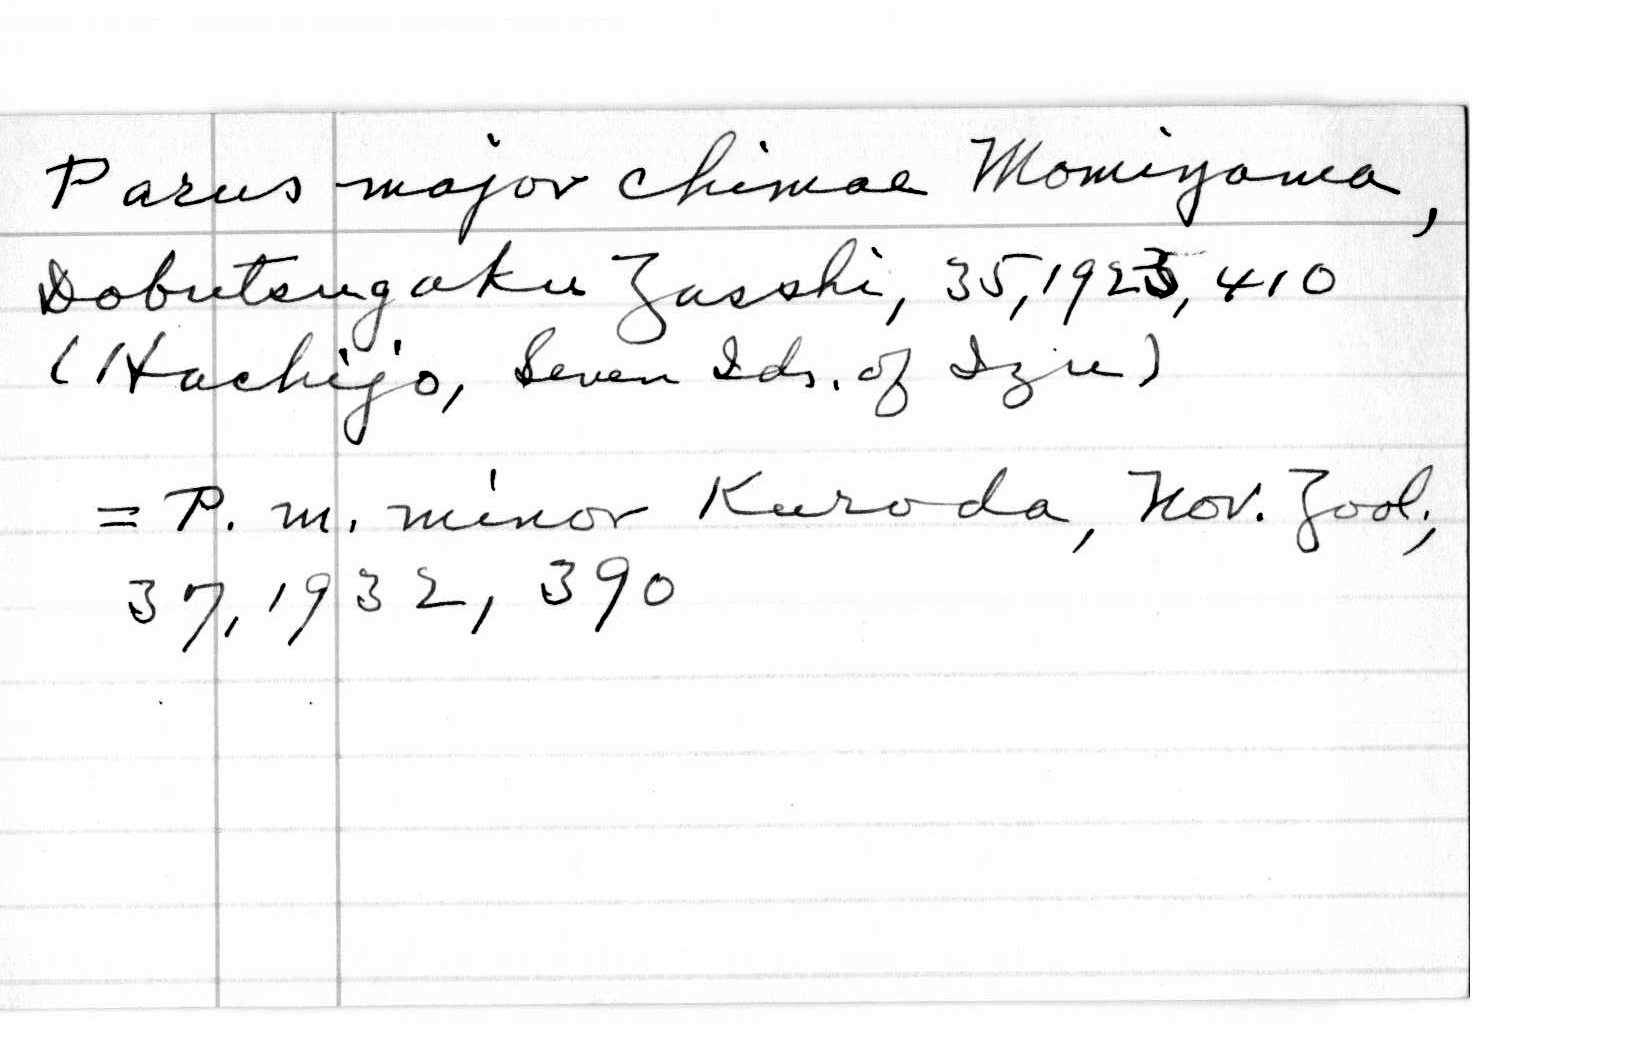 Parus major chimae Momiyama,
Dobutsugaku Zasshi, 35, 1923, 410
(Hachijo, Seven Ids. of Izu)
= P. m. minor Kuroda, Nov. Zool.,
37, 1932, 390